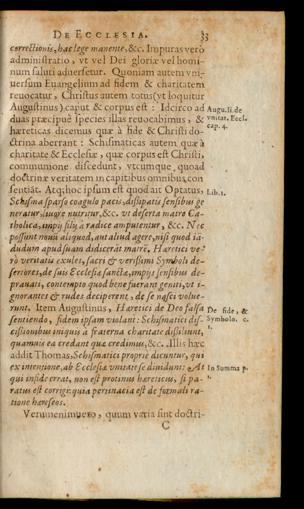 DE ECCLESIA. 33
correctionis, hac lege manente, &c. Impuras verò
administratio, vt vel Dei gloriæ vel homi-
num saluti aduersetur. Quoniam autem vni-
uersum Euangelium ad fidem & charitatem
reuocatur, Christus autem totus (vt loquitur
Augustinus) caput & corpus est : Idcirco ad
duas præcipuè species illas reuocabimus, &
hæreticos dicemus quæ à fide & Christi do-
ctrina aberrant : Schismaticos autem quæ à
charitate & Ecclesiæ, quæ corpus est Christi,
communione discedunt, vtcumque, quoad
doctrinæ veritatem in capitibus omnibus, con
sentiãt. Atq; hoc ipsum est quod ait Optatus,
Schisma sparso coagulo pacis, dissipatis sensibus ge
neratur, liuore nutritur, &c. vt deserta matre Ca-
tholica, impij filij à radice amputentur, &c. Nec
possunt noui aliquod, aut aliud agere, nisi quod ia-
dudum apud suam didicerāt matrē. Hæretici ve-
rò veritatis exules, sacri & verissimi Symboli de-
sertores, de suis Ecclesiæ sanctæ, impijs sensibus de-
prauati, contempto quod bene fuerant geniti, vt i-
gnorantes & rudes deciperent, de se nasci volue-
runt. Item Augustinus, Hæretici de Deo falsa
sentiendo, fidem ipsam violant: Schismatici dis-
cissionibus iniquis à fraterna charitate dissiliunt,
quamuis ea credant quæ credimus, &c. Illis hæc
addit Thomas, Schismatici propriè dicuntur, qui
ex intentione, ab Ecclesiæ vnitate se diuidunt: At
qui in fide errat, non est protinus hæreticus, si pa-
ratus est corrigi: quia pertinacia est de formali ra-
tione hæreseos.
Verumenimuero, quum varia sint doctri-
C
Augu. li. de
vnitat. Eccl.
cap. 4.
Lib. 1.
De fide, &
Symbolo. c.
1.
In Summa p.